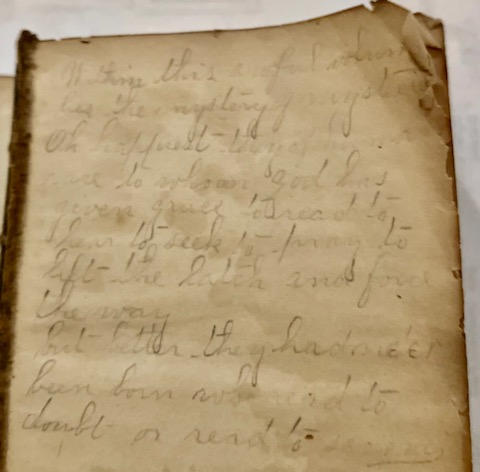 Within this awful volume
lies the mystery of mysteries
Oh happiest they of human
race to whom god has
given grace to read to
hear to seek to pray to
lift the latch and force
the way
but better they had ne'er
been born who read to
doubt or read to